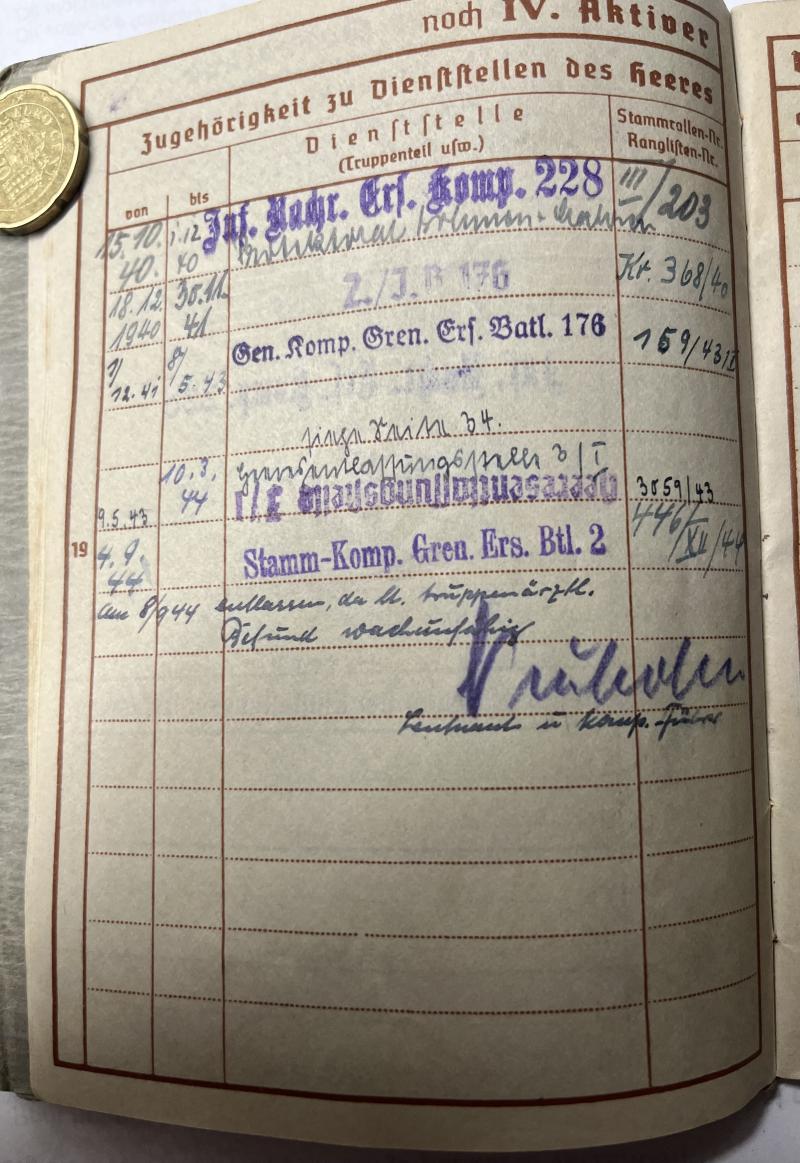 noch IV. Aktiver
Zugehörigkeit zu Dienststellen des Heeres
von
bis
Dienststelle
(Truppenteil usw.)
Stammrollen-Nr.
Ranglisten-Nr.
15.10. 40.
1.12 40
Inf. Nachr. Ers. Komp. 228
Protektorat Böhmen-Mähren
III/203
18.12. 1940
30.11. 41
2./J.B 176
Kr. 368/40
1/12.41
8/5.43
Gen. Komp. Gren. Ers. Batl. 176
159/43
siehe Seite 34.
10.3. 44
Heeresentlassungsstelle 3/I
9.5.43
Heeresentlassungsstelle 3/I
3059/43
19
4.9. 44
Stamm-Komp. Gren. Ers. Btl. 2
446/XII/44
am 8/9 44 entlassen, da lt. truppenärztl.
Befund
Leutnant u Komp.-Führer